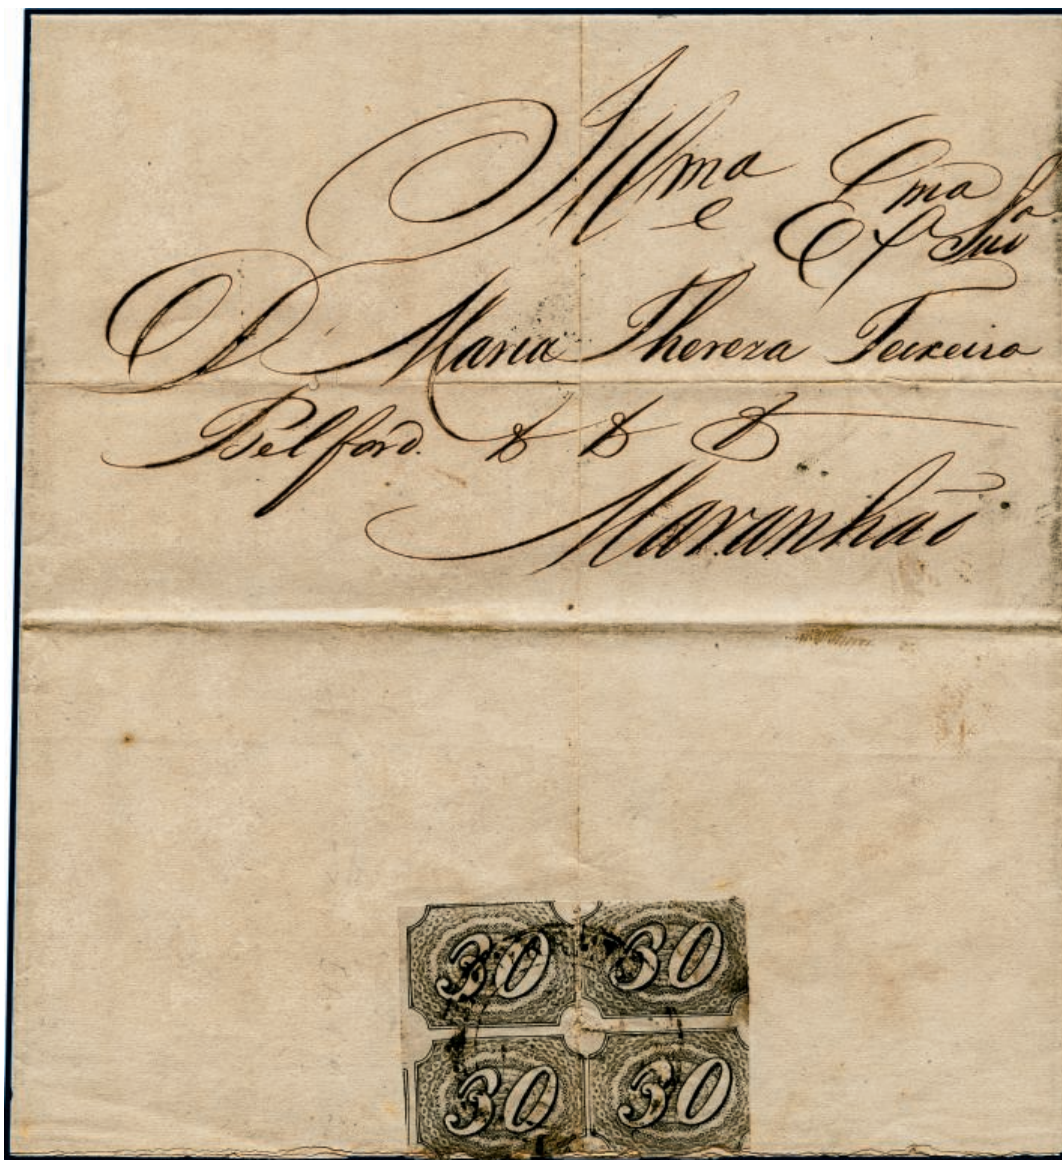 Illma e Exma Snra
D Maria Thereza Teixeira
Belford. & & &
Maranhão
30 30
30 30